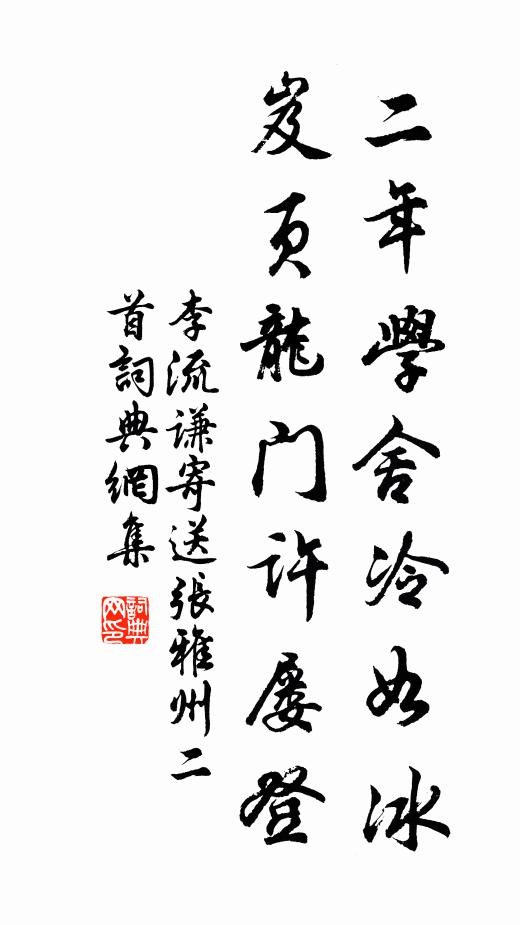 二年學舍冷如冰
岌頁龍門許屡登
李流謙寄送張雅州二
首詞典網集
詞典
网印